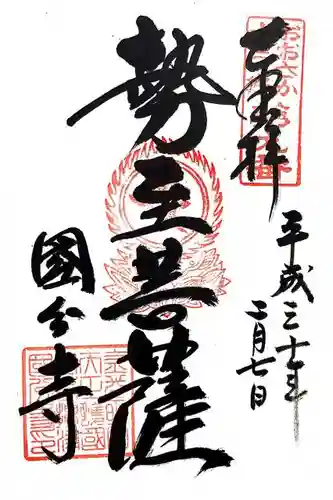 奉拝
平成三十年
二月七日
勢至菩薩
國分寺